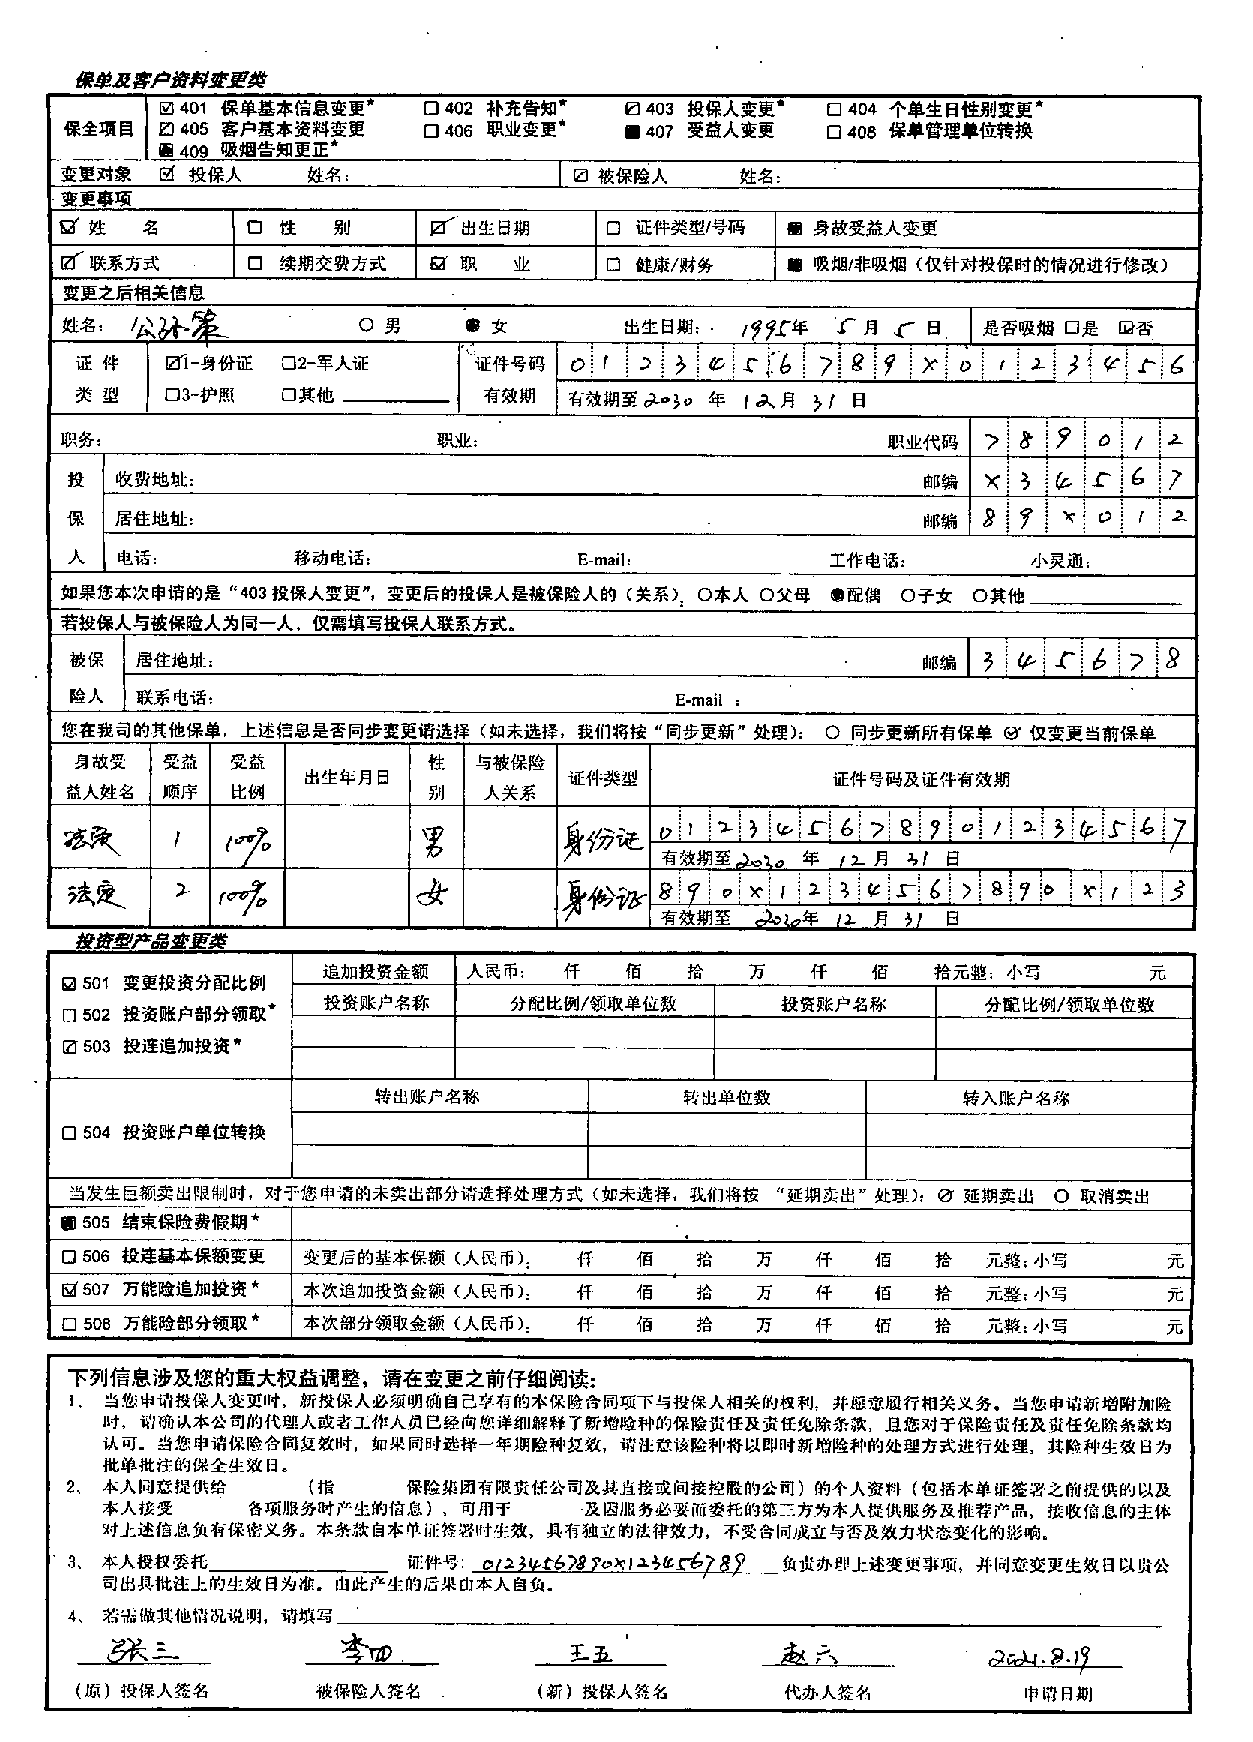 保单及客户资料变更类
保全项目 ☑ 401 保单基本信息变更* □ 402 补充告知* ☑ 403 投保人变更* □ 404 个单生日性别变更*
☑ 405 客户基本资料变更 □ 406 职业变更* ■ 407 受益人变更 □ 408 保单管理单位转换
■ 409 吸烟告知更正*
变更对象 ☑ 投保人 姓名: ☑ 被保险人 姓名:
变更事项
☑ 姓 名 □ 性 别 ☑ 出生日期 □ 证件类型/号码 ■ 身故受益人变更
☑ 联系方式 □ 续期交费方式 ☑ 职 业 □ 健康/财务 ■ 吸烟/非吸烟（仅针对投保时的情况进行修改）
变更之后相关信息
姓名: 公孙策 ○ 男 ● 女 出生日期: 1995年 5月 5日 是否吸烟 □是 ☑否
证 件 ☑1-身份证 □2-军人证 证件号码 0123456789X0123456
类 型 □3-护照 □其他 有效期 有效期至2030 年 12月 31 日
职务: 职业: 职业代码 789012
投 收费地址: 邮编 X34567
保 居住地址: 邮编 89X012
人 电话: 移动电话: E-mail: 工作电话: 小灵通:
如果您本次申请的是“403 投保人变更”，变更后的投保人是被保险人的（关系）: ○本人 ○父母 ●配偶 ○子女 ○其他
若投保人与被保险人为同一人，仅需填写投保人联系方式。
被保 居住地址: 邮编 345678
险人 联系电话: E-mail :
您在我司的其他保单，上述信息是否同步变更请选择（如未选择，我们将按“同步更新”处理）: ○ 同步更新所有保单 ☑ 仅变更当前保单
身故受 受益 受益 出生年月日 性 与被保险 证件类型 证件号码及证件有效期
益人姓名 顺序 比例 别 人关系
法定 1 100% 男 身份证 012345678901234567
有效期至2030 年 12 月 31 日
法定 2 100% 女 身份证 890X1234567890X123
有效期至 2030年 12 月 31 日
投资型产品变更类
☑ 501 变更投资分配比例 追加投资金额 人民币: 仟 佰 拾 万 仟 佰 拾元整: 小写 元
□ 502 投资账户部分领取* 投资账户名称 分配比例/领取单位数 投资账户名称 分配比例/领取单位数
☑ 503 投连追加投资*
转出账户名称 转出单位数 转入账户名称
□ 504 投资账户单位转换
当发生巨额卖出限制时，对于您申请的未卖出部分请选择处理方式（如未选择，我们将按 “延期卖出”处理）: ☑ 延期卖出 ○ 取消卖出
■ 505 结束保险费假期*
□ 506 投连基本保额变更 变更后的基本保额（人民币）: 仟 佰 拾 万 仟 佰 拾 元整: 小写 元
☑ 507 万能险追加投资* 本次追加投资金额（人民币）: 仟 佰 拾 万 仟 佰 拾 元整: 小写 元
□ 508 万能险部分领取* 本次部分领取金额（人民币）: 仟 佰 拾 万 仟 佰 拾 元整: 小写 元
下列信息涉及您的重大权益调整，请在变更之前仔细阅读:
1、 当您申请投保人变更时，新投保人必须明确自己享有的本保险合同项下与投保人相关的权利，并愿意履行相关义务。当您申请新增附加险
时，请确认本公司的代理人或者工作人员已经向您详细解释了新增险种的保险责任及责任免除条款，且您对于保险责任及责任免除条款均
认可。当您申请保险合同复效时，如果同时选择一年期险种复效，请注意该险种将以即时新增险种的处理方式进行处理，其险种生效日为
批单批注的保全生效日。
2、 本人同意提供给 （指 保险集团有限责任公司及其直接或间接控股的公司）的个人资料（包括本单证签署之前提供的以及
本人接受 各项服务时产生的信息），可用于 及因服务必要而委托的第三方为本人提供服务及推荐产品，接收信息的主体
对上述信息负有保密义务。本条款自本单证签署时生效，具有独立的法律效力，不受合同成立与否及效力状态变化的影响。
3、 本人授权委托 证件号: 01234567890X123456789 负责办理上述变更事项，并同意变更生效日以贵公
司出具批注上的生效日为准。由此产生的后果由本人自负。
4、 若需做其他情况说明，请填写
张三 李四 王五 赵六 2021.8.19
（原）投保人签名 被保险人签名 （新）投保人签名 代办人签名 申请日期